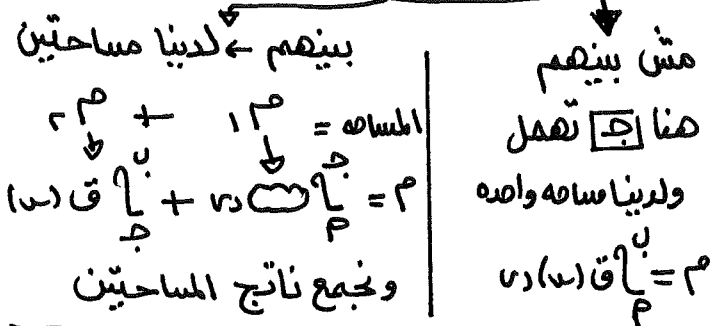 مش بينهم
هنا جـ تهمل
ولدينا مساحه واحده
م = ∫ ب م ق(س) دس
بينهم ← لدينا مساحتين
المساحه = م١ + م٢
م = ∫ جـ م دس + ∫ ب جـ ق(س)
ونجمع ناتج المساحتين